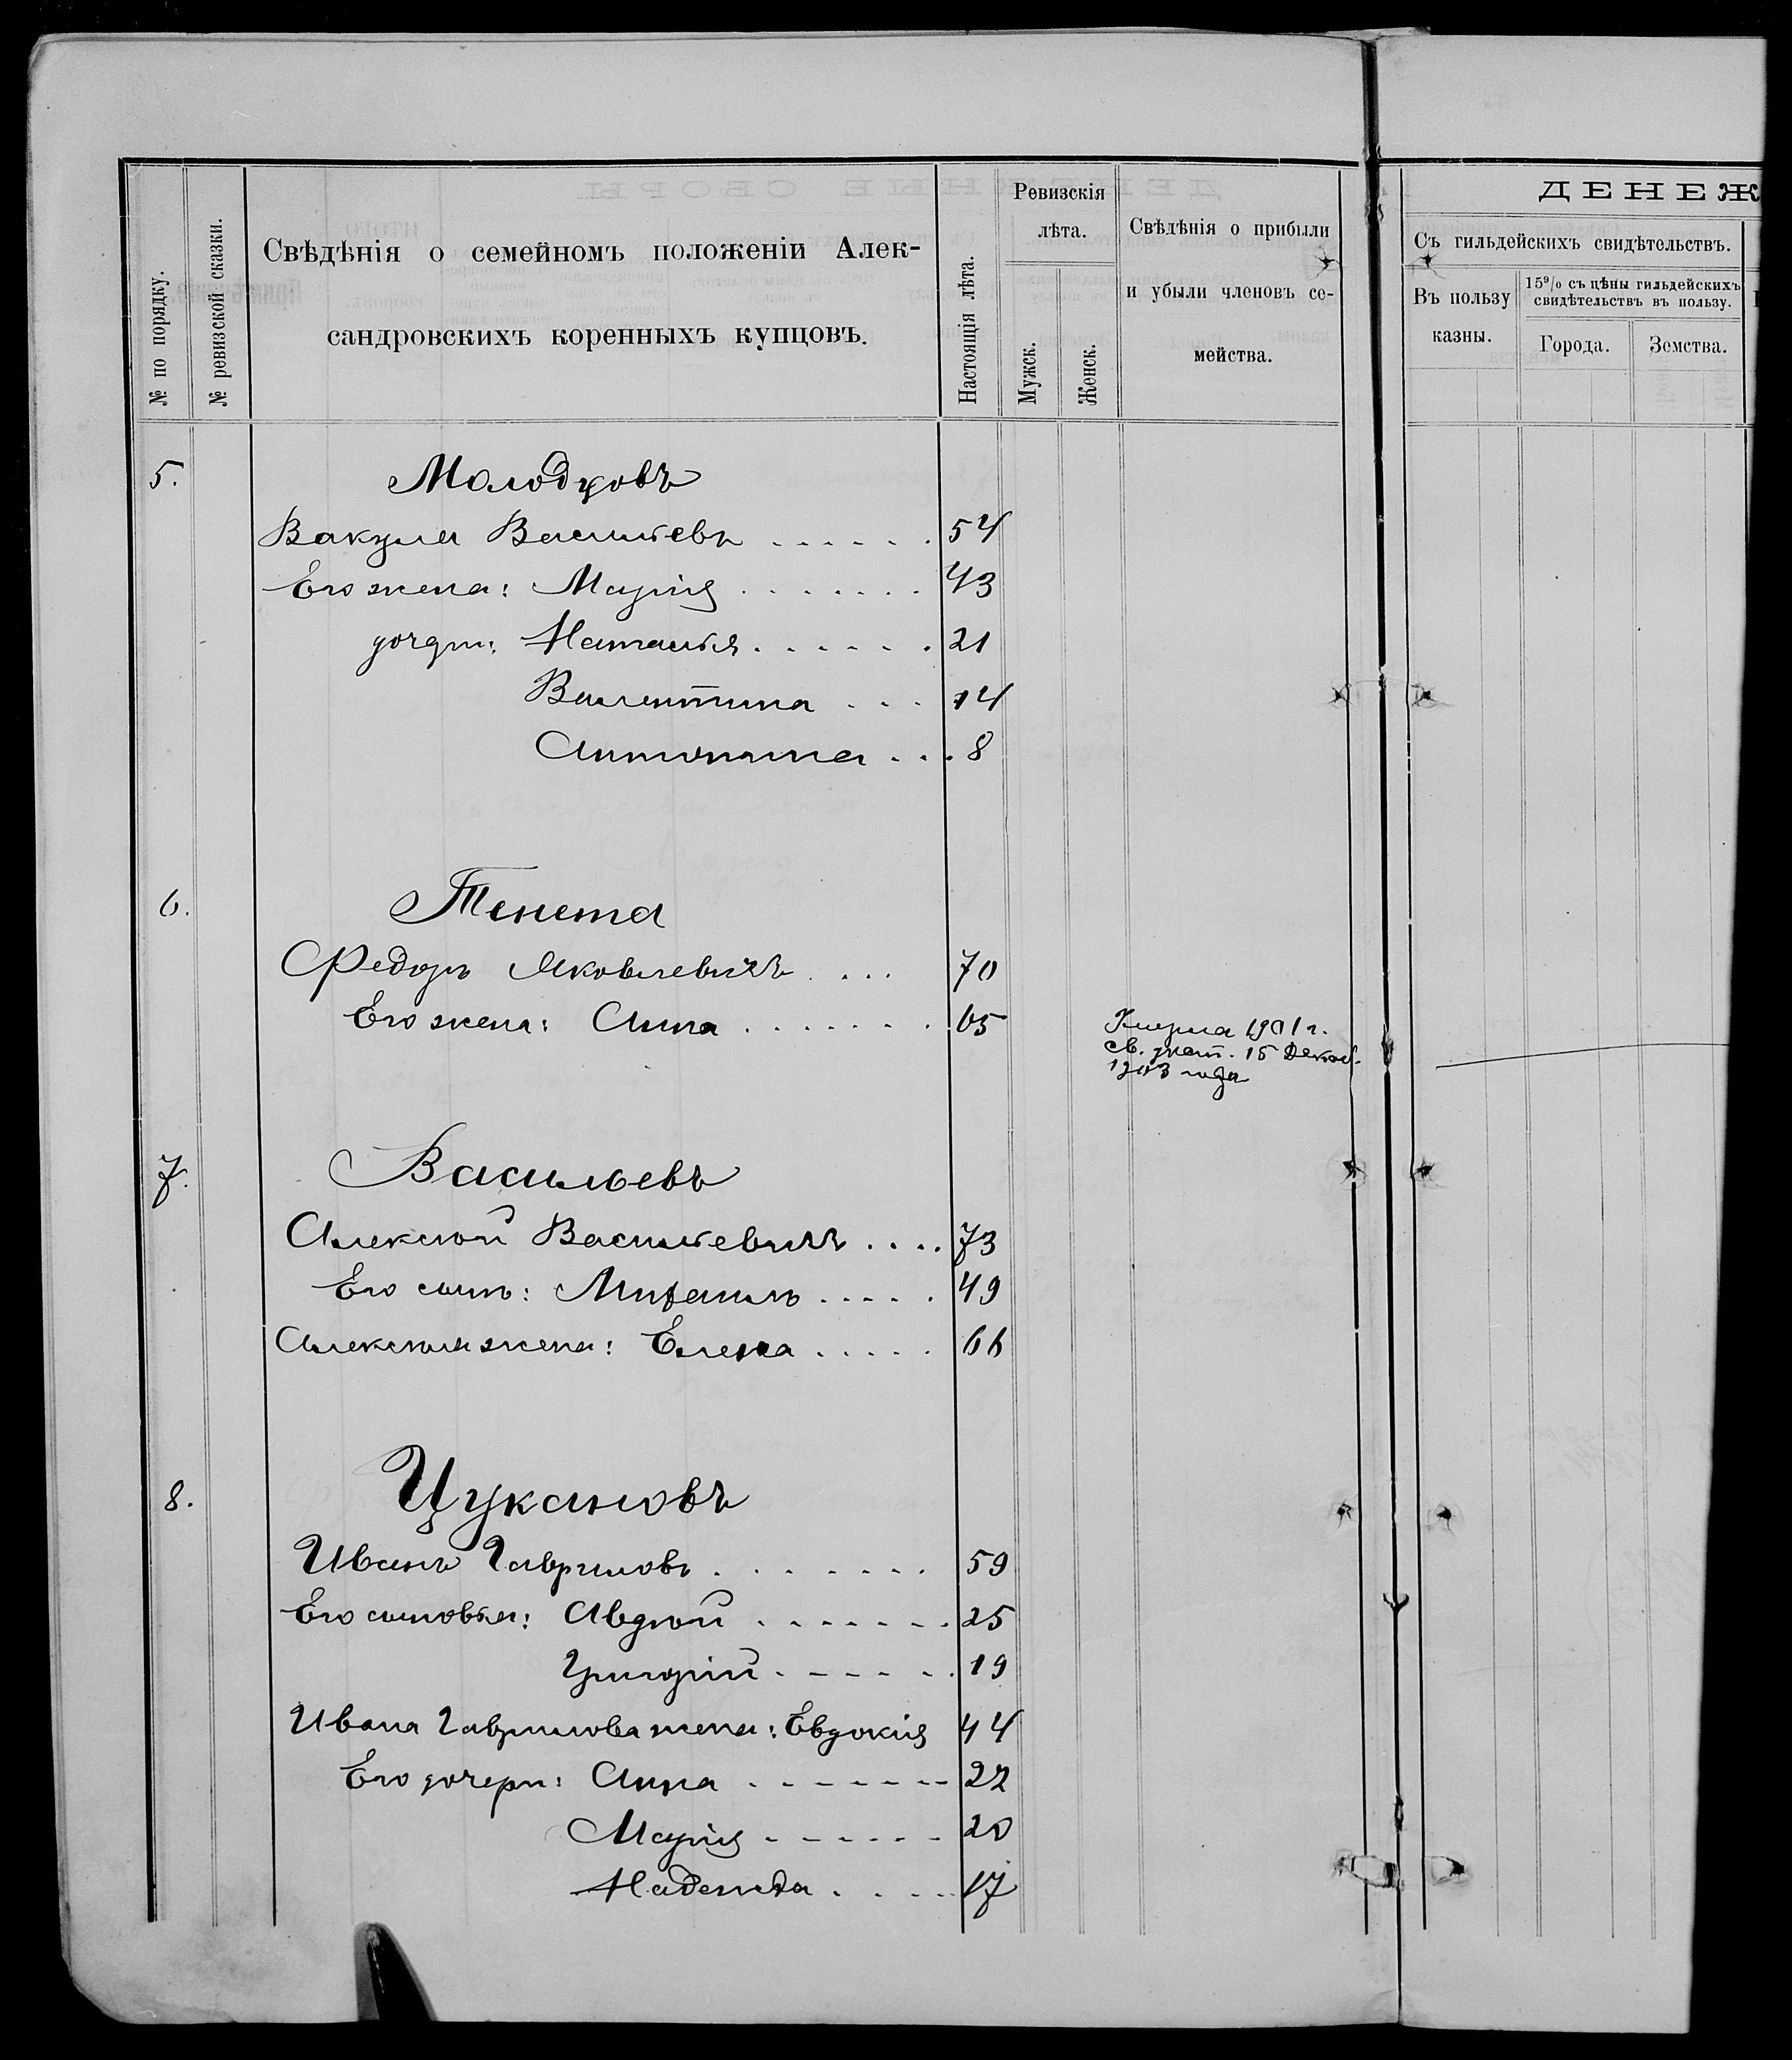 № по порядку.
№ ревизской сказки.
Свѣдѣнія о семейномъ положеніи Алек-
сандровскихъ коренныхъ купцовъ.
Настоящія лѣта.
Ревизскія
лѣта.
Мужск.
Женск.
Свѣдѣнія о прибыли
и убыли членовъ се-
мейства.
ДЕНЕЖ
Съ гильдейскихъ свидѣтельствъ.
Въ пользу
казны.
15% съ цѣны гильдейскихъ
свидѣтельствъ въ пользу.
Города.
Земства.
5. Молодцовъ
Вакула Васильевъ 54
Его жена: Марія 43
дочери: Наталья 21
Валентина 14
Антонина 8
6. Тенета
Федоръ Яковлевичъ 70
Его жена: Анна 65
Умерла 1901 г.
св. 15 Декаб.
1903 года
7. Васильевъ
Алексѣй Васильевичъ 73
Его сынъ: Михаилъ 49
Алексѣя жена: Елена 66
8. Цукановъ
Иванъ Гавриловъ 59
Его сыновья: Авдѣй 25
Григорій 19
Ивана Гаврилова жена: Евдокія 44
Его дочери: Анна 22
Марія 20
Надежда 17